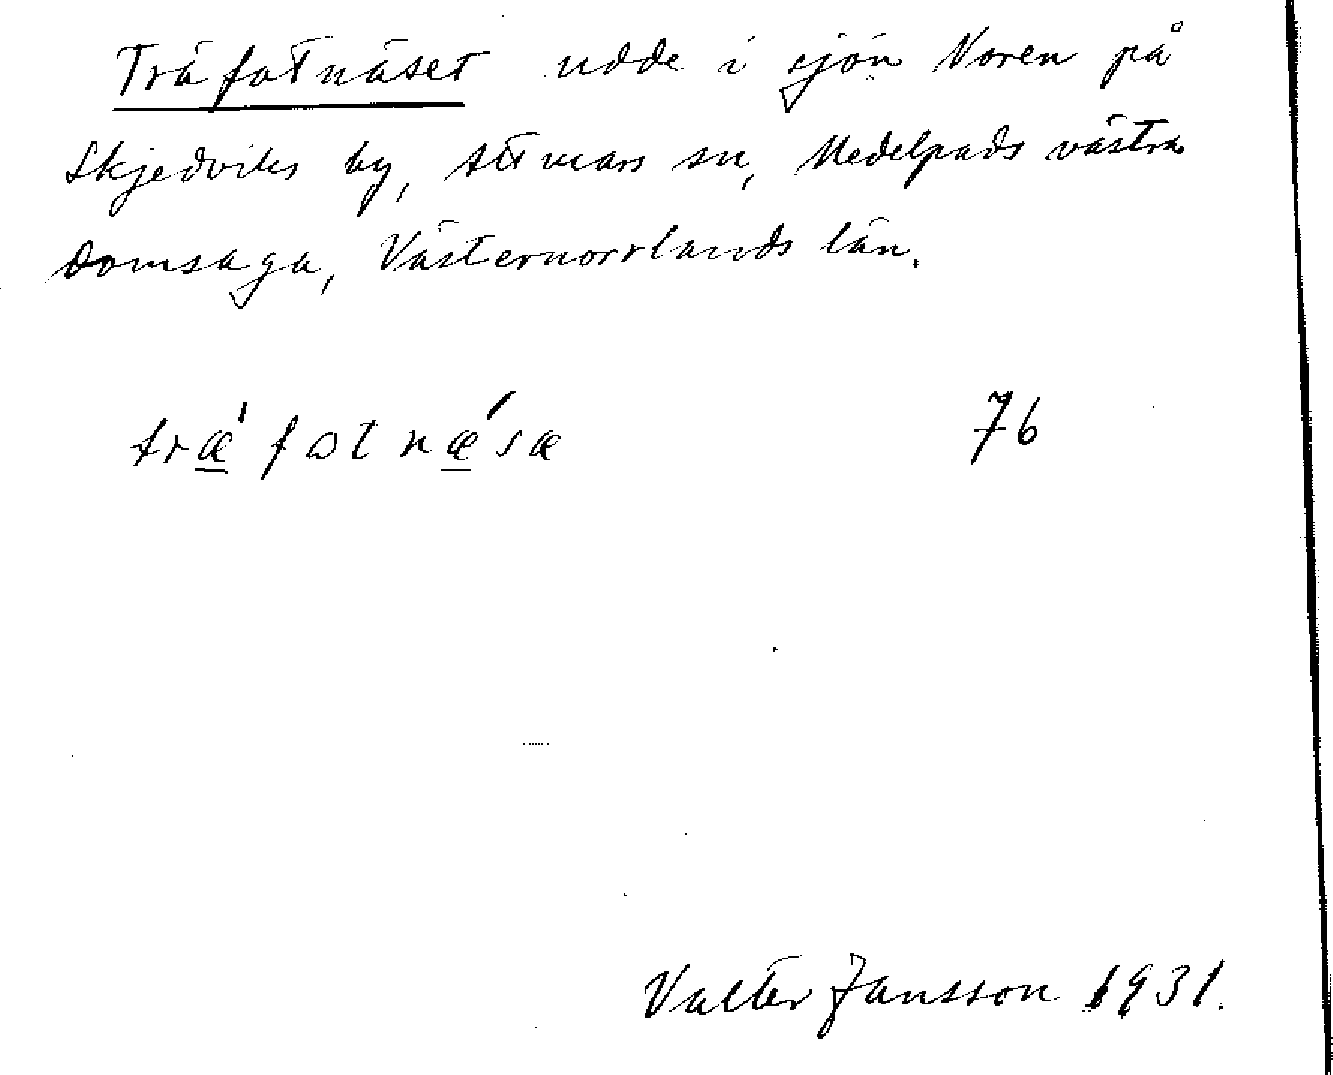 Träfatnäset udde i sjön Noren på
Skjedviks by, Attmars sn, Medelpads västra
Domsaga, Västernorrlands län.
træ̲' fatnǽ̲sæ 76
Valter Jansson 1931.